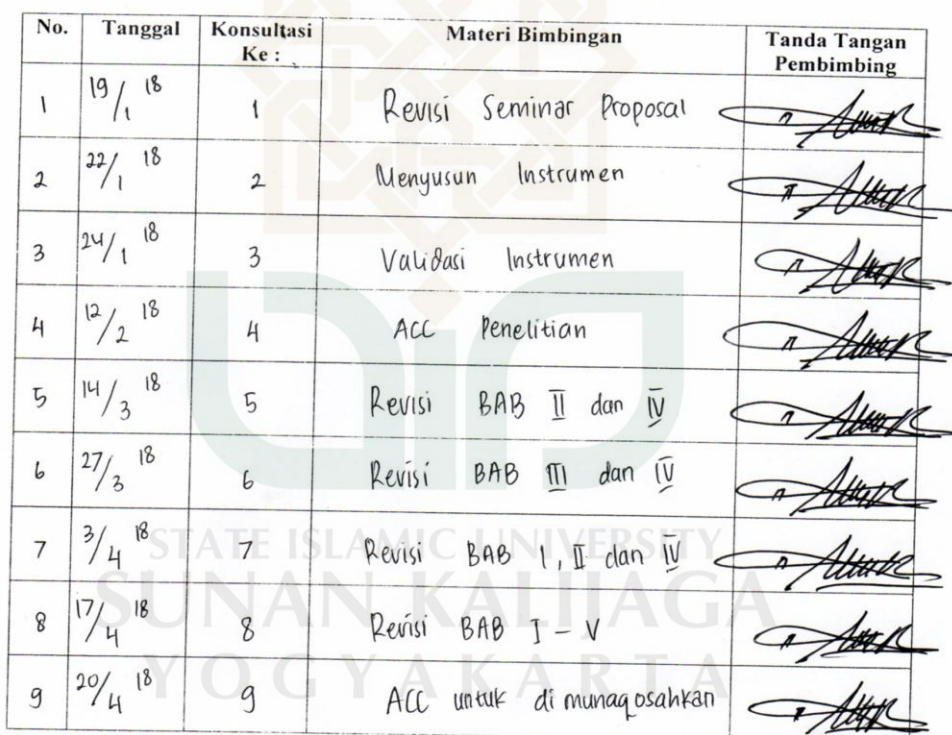 No. Tanggal Konsultasi Ke : Materi Bimbingan Tanda Tangan Pembimbing
1 19/1 18 1 Revisi Seminar Proposal
2 22/1 18 2 Menyusun Instrumen
3 24/1 18 3 Validasi Instrumen
4 12/2 18 4 ACC Penelitian
5 14/3 18 5 Revisi BAB II dan IV
6 27/3 18 6 Revisi BAB III dan IV
7 3/4 18 7 Revisi BAB I, II dan IV
8 17/4 18 8 Revisi BAB I - V
9 20/4 18 9 ACC untuk di munaqosahkan
STATE ISLAMIC UNIVERSITY
SUNAN KALIJAGA
YOGYAKARTA